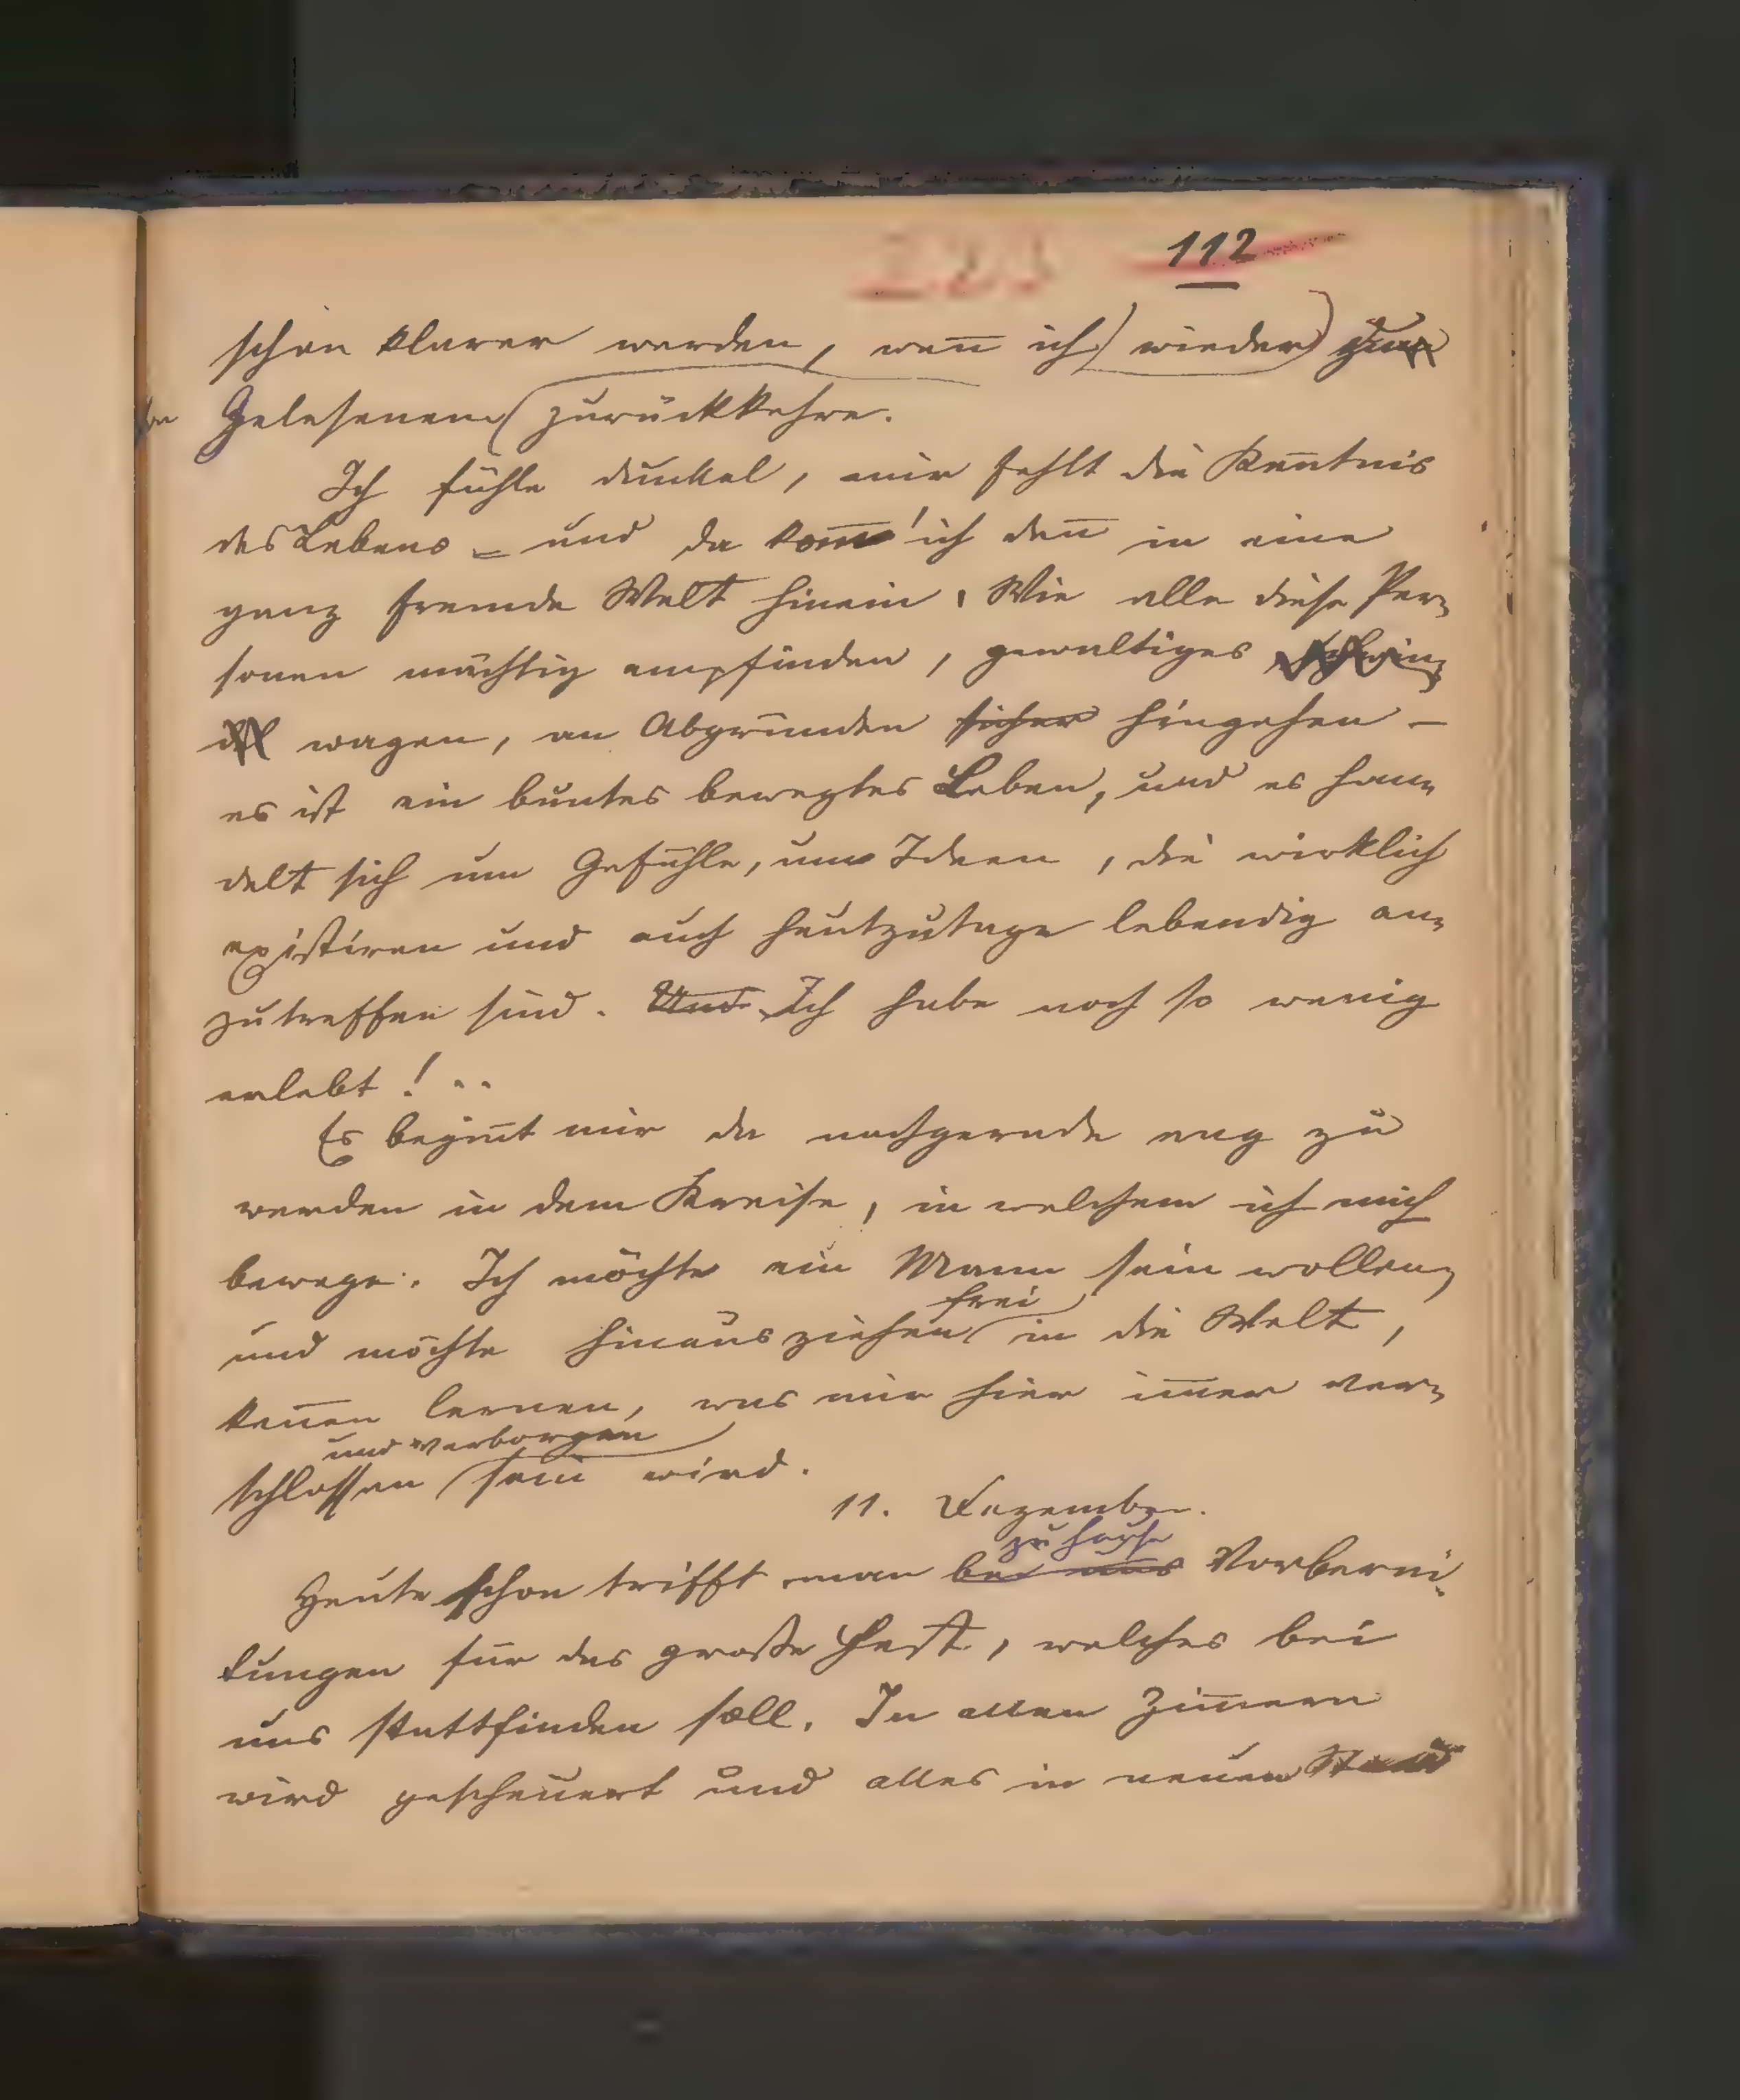 112
schon klarer werden, weñ ich wieder zum
Gelesenen zurückkehre.
Ich fühle dunkel, mir fehlt die Keñtnis
des Lebens – und da kom̄' ich deñ in eine
ganz fremde Welt hinein. Wie alle diese Per-
sonen mächtig empfinden, gewaltiges
wagen, an Abgründen sicher hingehen –
es ist ein buntes bewegtes Leben, und es han-
delt sich um Gefühle, um Ideen, die wirklich
existiren und auch heutzutage lebendig an-
zutreffen sind. Und Ich habe noch so wenig
erlebt! ..
Es begiñt mir da nachgerade eng zu
werden in dem Kreise, in welchem ich mich
bewege. Ich möchte ein Mann sein wollen,
frei
und möchte hinausziehen in die Welt,
keñen lernen, was mir hier im̄er ver-
und verborgen
schlossen sein wird.
11. Dezember.
zu hause
Heute schon trifft man bei uns Vorberei-
tungen für das große Fest, welches bei
uns stattfinden soll. In allen Zim̄ern
wird gescheuert und alles in neuen Stand